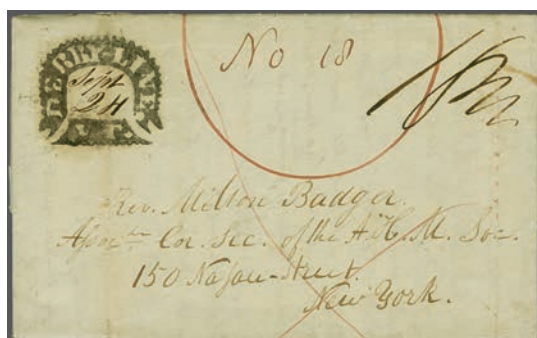 DERBY LINE
Sept
24
VT.
No 18
Rev. Milton Badger.
Cor. Sec. of the A. H. M. Soc.
150 Nassau-Street.
New York.